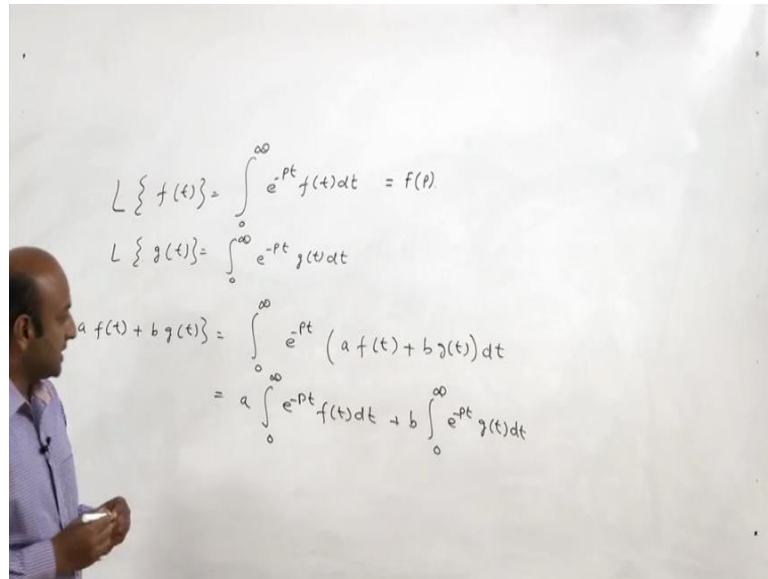 L { f(t)} = ∫₀^∞ e^{-pt} f(t) dt = f(p).
L { g(t)} = ∫₀^∞ e^{-pt} g(t) dt
a f(t) + b g(t)} = ∫₀^∞ e^{-pt} (a f(t) + b g(t)) dt
= a ∫₀^∞ e^{-pt} f(t) dt + b ∫₀^∞ e^{-pt} g(t) dt